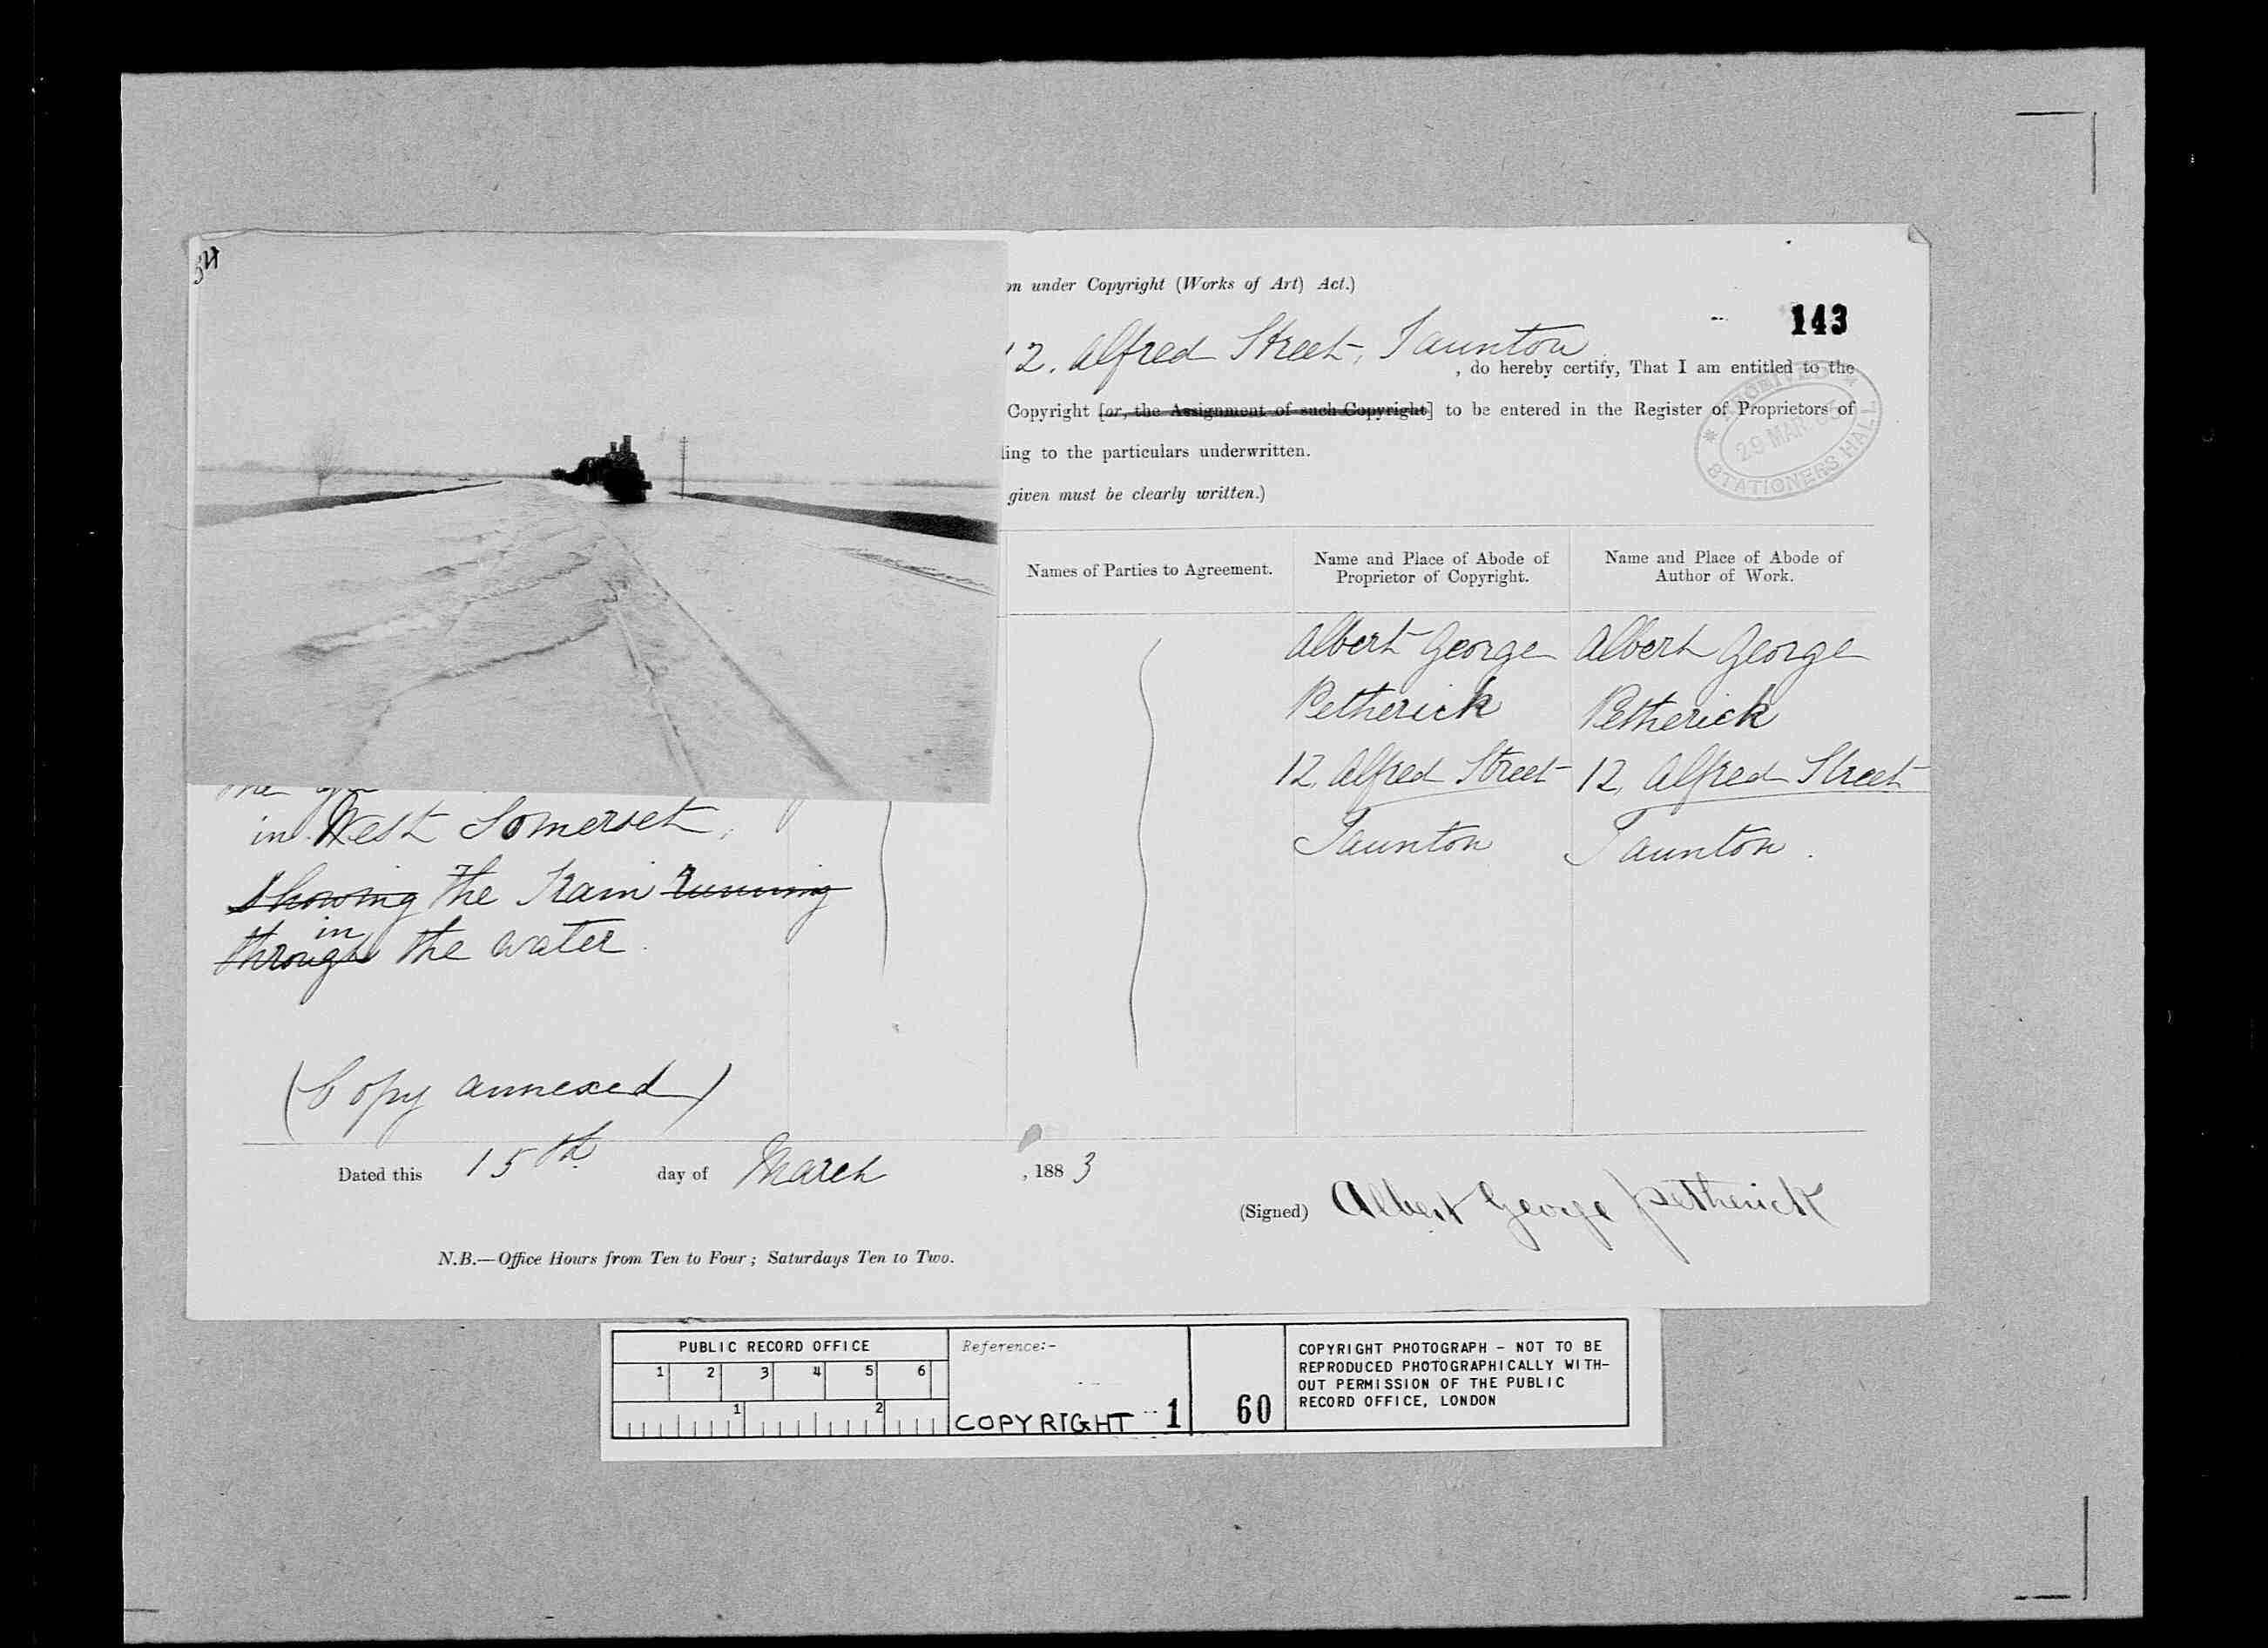 54
on under Copyright (Works of Art) Act.)
143
12, Alfred Street, Taunton
, do hereby certify, That I am entitled to the
Copyright [or, the Assignment of such Copyright] to be entered in the Register of Proprietors of
ling to the particulars underwritten.
given must be clearly written.)
29 MAR. 83
STATIONERS HALL
Names of Parties to Agreement.
Name and Place of Abode of
Proprietor of Copyright.
Name and Place of Abode of
Author of Work.
Albert George
Petherick
12, Alfred Street
Taunton
Albert George
Petherick
12, Alfred Street
Taunton.
the
in West Somerset,
showing the Train running
in
through the water.
(Copy annexed)
Dated this 15th day of March, 1883
(Signed) Albert George Petherick
N.B.—Office Hours from Ten to Four; Saturdays Ten to Two.
PUBLIC RECORD OFFICE
1 2 3 4 5 6
1 2
Reference:-
COPYRIGHT 1 60
COPYRIGHT PHOTOGRAPH - NOT TO BE
REPRODUCED PHOTOGRAPHICALLY WITH-
OUT PERMISSION OF THE PUBLIC
RECORD OFFICE, LONDON